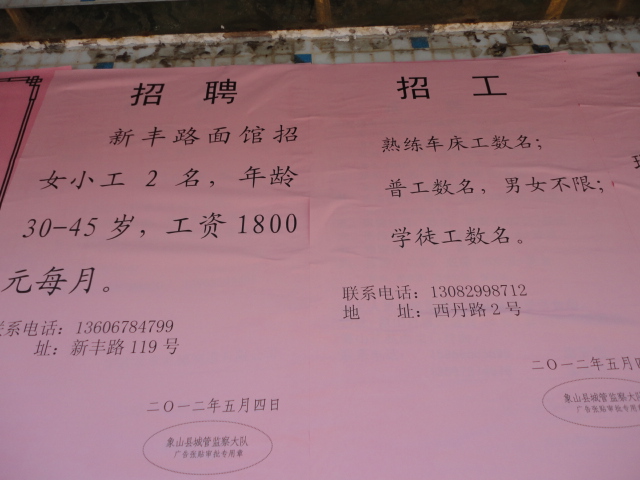 招 聘
新丰路面馆招
女小工 2 名，年龄
30-45 岁，工资 1800
元每月。
联系电话：13606784799
址：新丰路 119 号
二〇一二年五月四日
象山县城管监察大队
广告张贴审批专用章
招 工
熟练车床工数名；
普工数名，男女不限；
学徒工数名。
联系电话：13082998712
地 址：西丹路 2 号
二〇一二年五月四
象山县城管监察大队
广告张贴审批专用